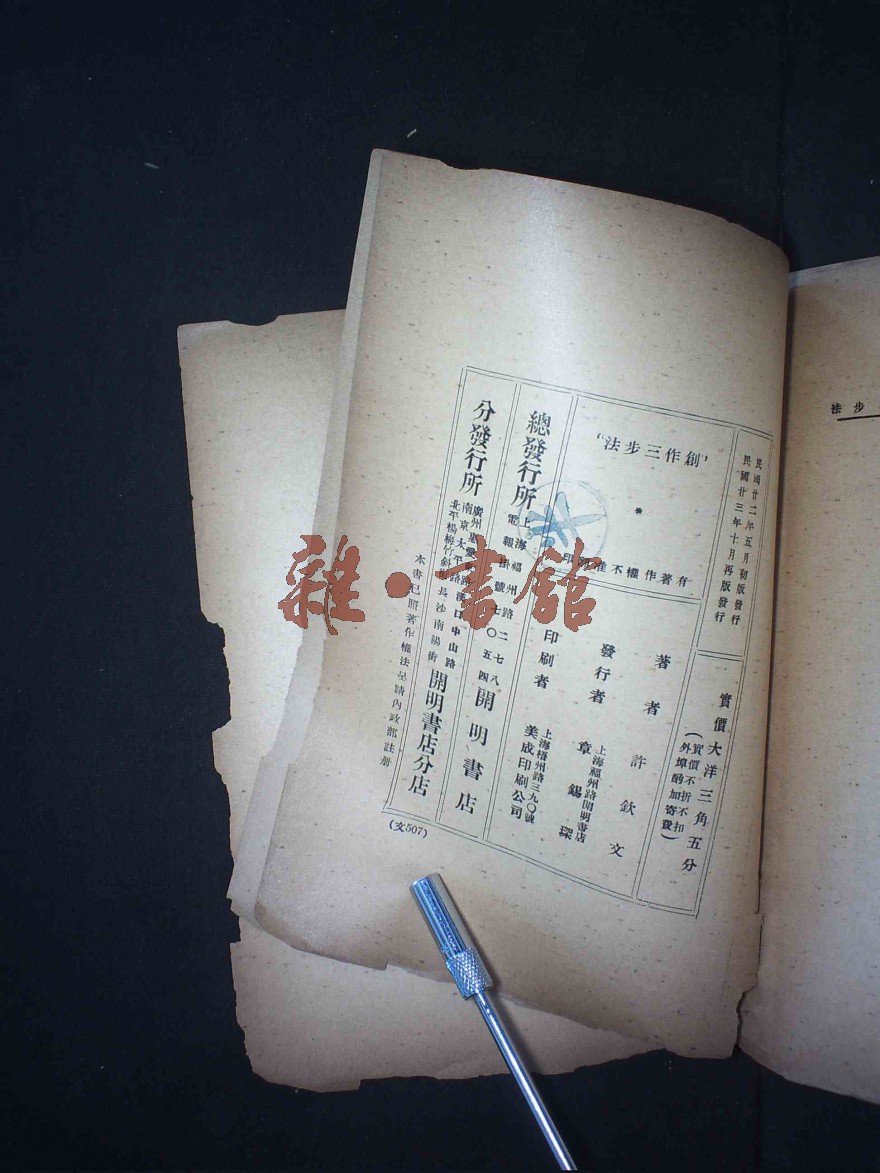 民國廿二年五月初版發行
民國廿三年十月再版發行
實價大洋三角五分
（實價不折不扣
外埠酌加寄費）
“法步三作創”
有著作權不准翻印
著者 許欽文
發行者 章錫琛
上海福州路開明書店
印刷者 美成印刷公司
上海梧州路三九〇號
總發行所
上海福州路二七八
電報掛號七〇五四
開明書店
分發行所
廣州惠愛路 漢口中山路
南京太平路 長沙南陽街
北平楊梅竹斜街
開明書店分店
本書已照著作權法呈請內政部註册
（文507）
法步
雜·書館